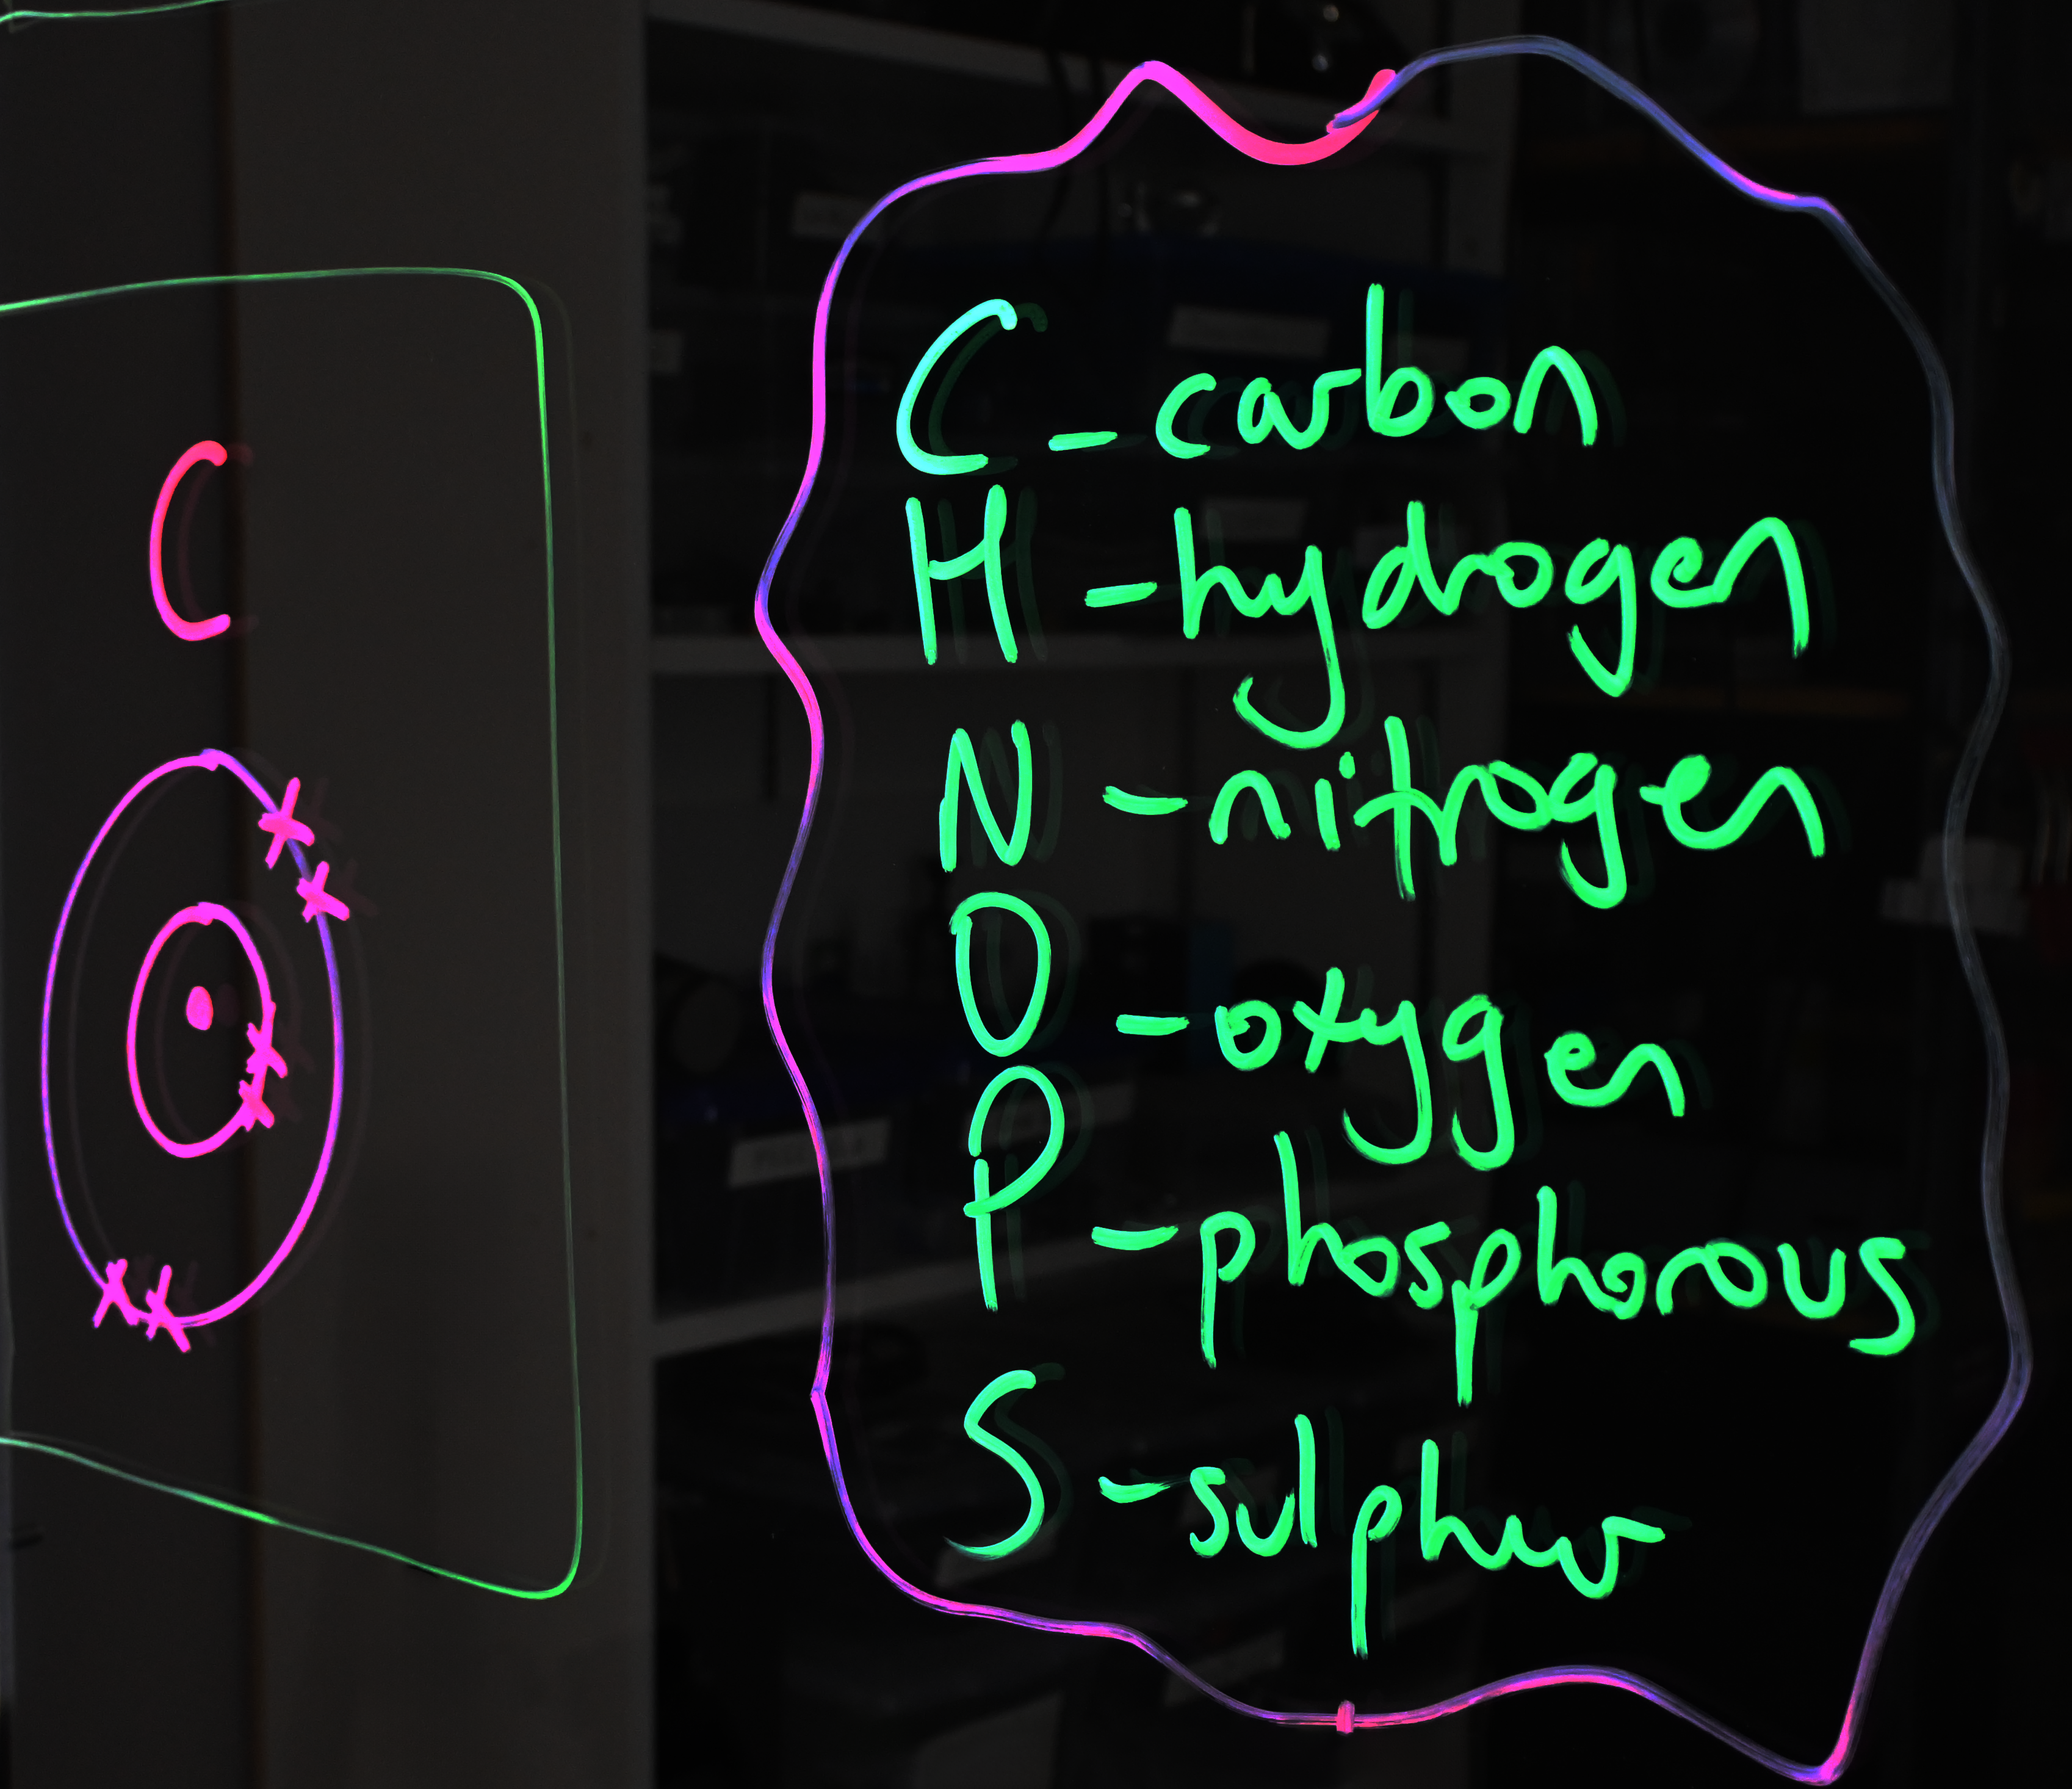 C
C - carbon
H - hydrogen
N - nitrogen
O - oxygen
P - phosphorous
S - sulphur